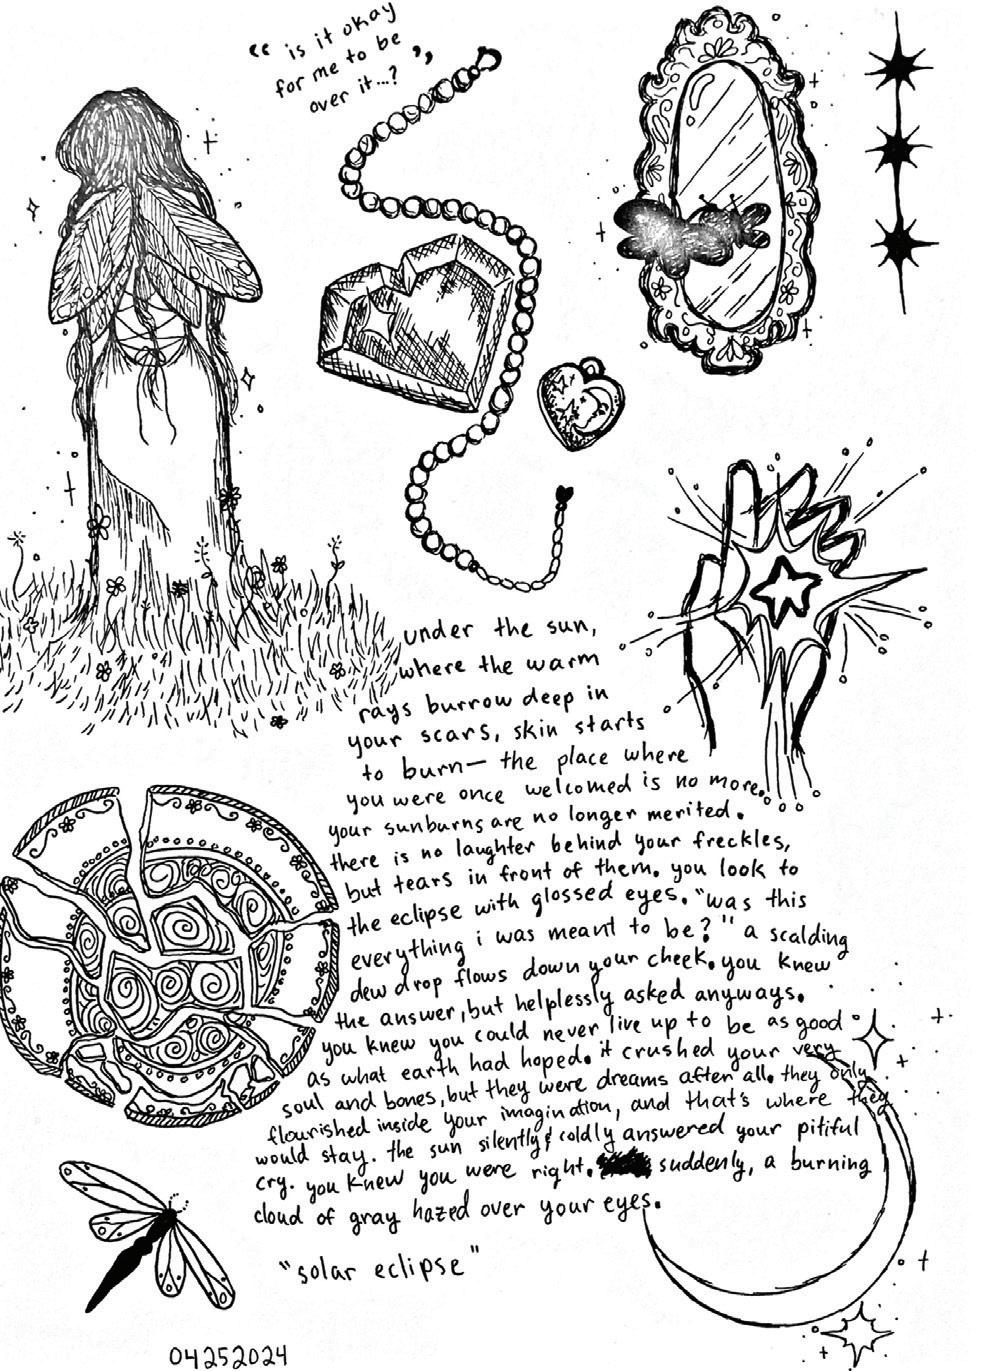 “ is it okay
for me to be
over it...? ”
under the sun,
where the warm
rays burrow deep in
your scars, skin starts
to burn— the place where
you were once welcomed is no more.
your sunburns are no longer merited.
there is no laughter behind your freckles,
but tears in front of them. you look to
the eclipse with glossed eyes. "was this
everything i was meant to be?" a scalding
dew drop flows down your cheek. you knew
the answer, but helplessly asked anyways.
you knew you could never live up to be as good
as what earth had hoped. it crushed your very
soul and bones, but they were dreams after all. they only
flourished inside your imagination, and that's where they
would stay. the sun silently & coldly answered your pitiful
cry. you knew you were right. suddenly, a burning
cloud of gray hazed over your eyes.
"solar eclipse"
04252024